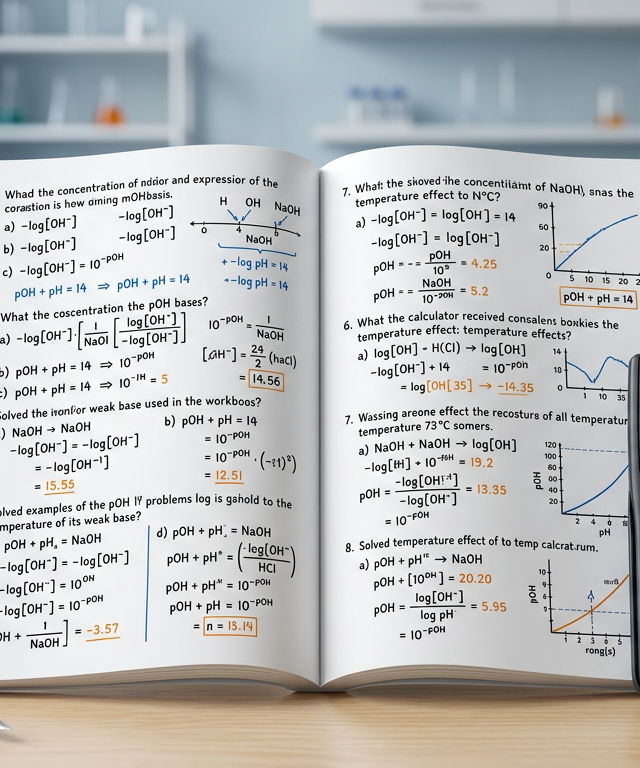 Whad the concentration of and expressior of the
is hew aiming mOHbasis.
a) -log[OH⁻] -log[OH⁻]
b) -log[OH⁻] -log[OH⁻]
c) -log[OH⁻] = 10⁻ᵖᴼᴴ
pOH + pH = 14 ⇒ pOH + pH = 14
H OH NaOH
0 4 8
NaOH
+ -log pH = 14
-log pH = 14
What the coscentration the pOH bases?
a) -log[OH⁻]·[1/NaOl [log[OH⁻]/-log[OH⁻]]
10⁻ᵖᴼᴴ = 1/NaOH
b) pOH + pH = 14 ⇒ 10⁻ᵖᴼᴴ
= 24/2 (haCl)
c) pOH + pH = 14 ⇒ 10⁻ᴵᴴ = 5
= 14.56
Solved the weak base used in the workboos?
) NaOH → NaOH
-log[OH⁻] = -log[OH⁻]
= -log[OH⁻¹]
= 15.55
b) pOH + pH = 14
= 10⁻ᵖᴼᴴ
= 10⁻ᵖᴼᴴ
= 12.51
lved examples of the pOH problems log is gahold to the
mperature of its weak base?
pOH + pHₐ = NaOH
-log[OH⁻] = -log[OH⁻]
-log[OH⁻] = 10ᴼᴴ
-log[OH⁻] = 10⁻ᵖᴼᴴ
OH + 1/NaOH] = -3.57
d) pOH + pH = NaOH
pOH + pH = (-log[OH⁻/HCl)
pOH + pH = 10⁻ᵖᴼᴴ
pOH + pH = 10⁻ᵖᴼᴴ
= n = 13.14
7. What: the skoved the of NaOH), snas the
temperature effect to N°C?
a) -log[OH⁻] = log[OH] = 14
-log[OH⁻] = log[OH⁻]
pOH = - = pOH/10 = 4.25
pOH = = NaOH/10 = 5.2
90
60
20
0 5 10 15 20 2
pOH + pH = 14
6. What the calculator received consalens
temperature effect: temperature effects?
a) log[OH] - H(Cl) → log[OH]
-log[OH⁻] + 14 = 10
= log[OH[35] → -14.35
14
8
0
1 10 35
7. Wassing areone effect the recosturs of all temperatur
temperature 73°C somers.
a) NaOH + NaOH → log[OH]
= 19.2
pOH = /-log[OH⁻] = 13.35
= 10
120
100
80
60
40
20
pOH
2 4 6
pH
8. Solved temperature effect of to temp
a) pOH + pH → NaOH
pOH + [10ᴼᴴ] = 20.20
pOH = log[OH⁻]/log pH = 5.95
= 10
10
pOH
1 2 3 4 5
rong(s)